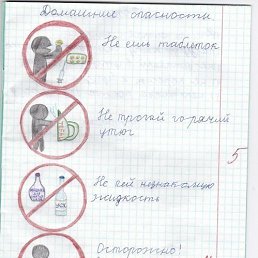 Домашние опасности.
Не ешь таблеток
Не трогай горячий
утюг
5
Не пей незнакомую
жидкость
Осторожно!